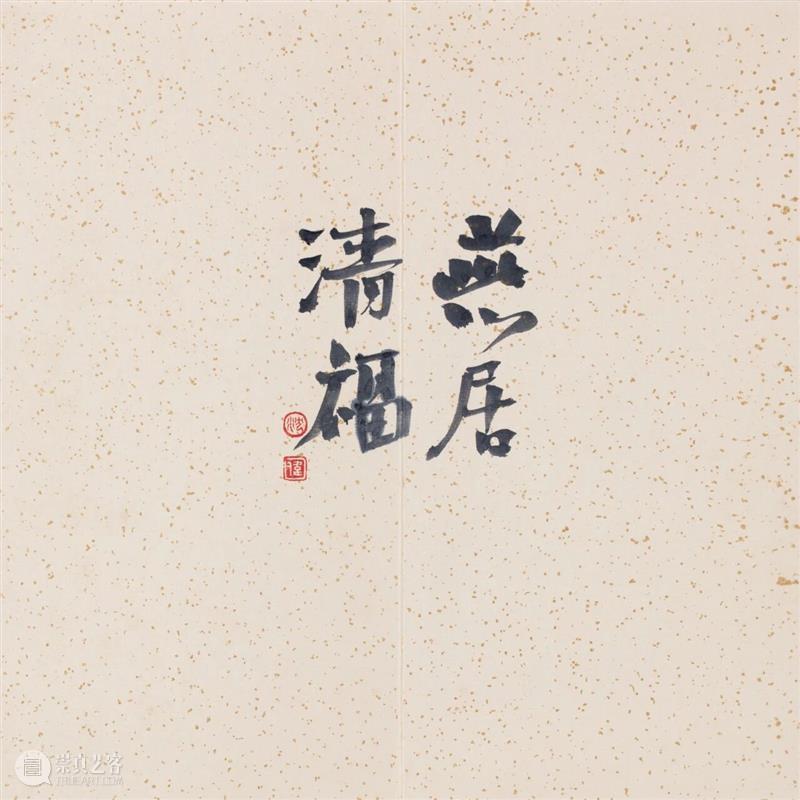 燕居
清福
崇真艺客
TRUEART.COM